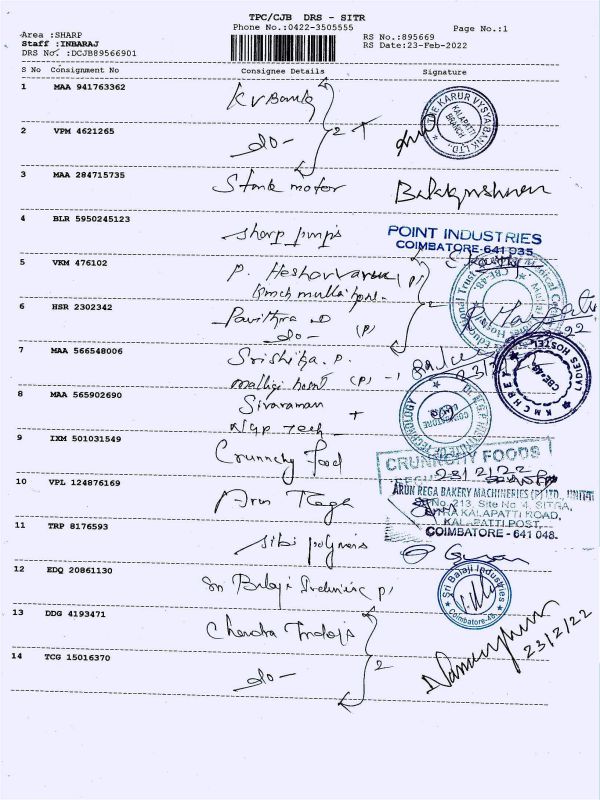 TPC/CJB DRS - SITR
Phone No.:0422-3505555
Page No.:1
Area :SHARP
Staff :INBARAJ
DRS No. :DCJB89566901
RS No.:895669
RS Date:23-Feb-2022
S No Consignment No Consignee Details Signature
1 MAA 941763362 KV Bank
THE KARUR VYSYA BANK LTD.,
KALAPATTI BRANCH
2 VPM 4621265 do - 2
3 MAA 284715735 Stank motor Balakrishnan
4 BLR 5950245123 sharp pumps
POINT INDUSTRIES
COIMBATORE-641 035
5 VKM 476102 P.
(P)
6 HSR 2302342 Pavithra D
do - (P)
7 MAA 566548006 Srishika. P.
(P)
KMCH LADIES HOSTEL
8 MAA 565902690 Sivaraman
NGP Tech
9 IXM 501031549 Crunchy Food
CRUNCHY FOODS
23/2/22
10 VPL 124876169 Arun Rega
ARUN REGA BAKERY MACHINERIES (P) LTD., UNIT-II
No. 213, Site No. 4, SITRA,
KALAPATTI ROAD,
KALAPATTI POST,
COIMBATORE - 641 048.
11 TRP 8176593 Sibi polymers
12 EDQ 20861130 Sri Balaji P)
Sri Balaji Industries
Coimbatore-48.
13 DDG 4193471 Chandra
2
23/2/22
14 TCG 15016370 do -